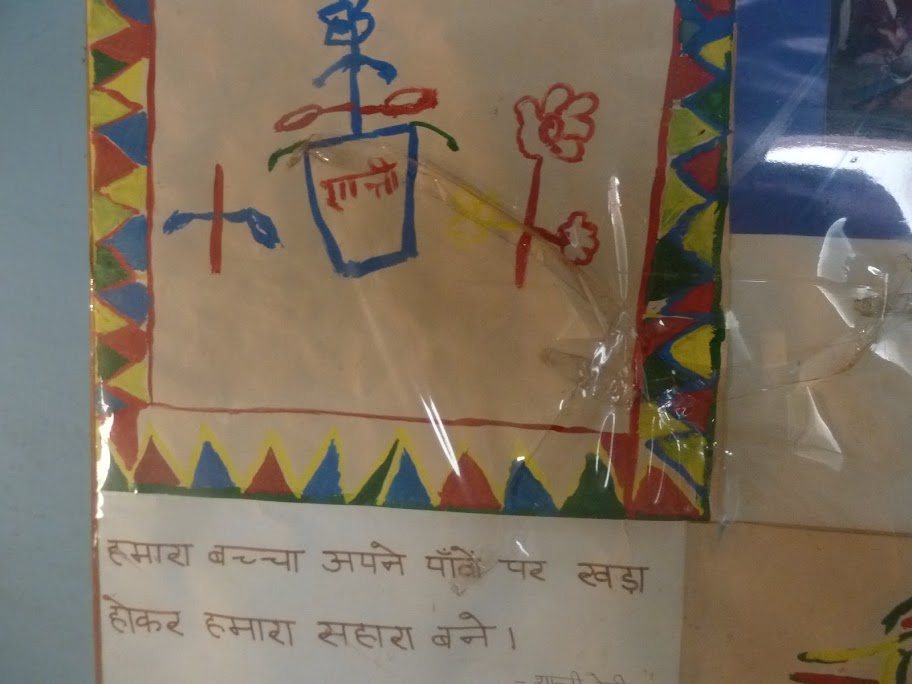 शान्ती
हमारा बच्चा अपने पाँवों पर खड़ा
होकर हमारा सहारा बने।